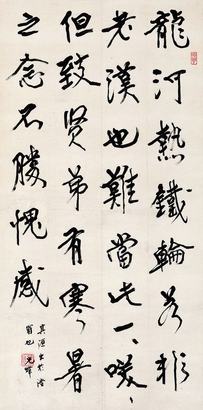 龍河熱鐵輪若非
老漢也難當此一
但致贤弟有寒暑
之念不勝愧感